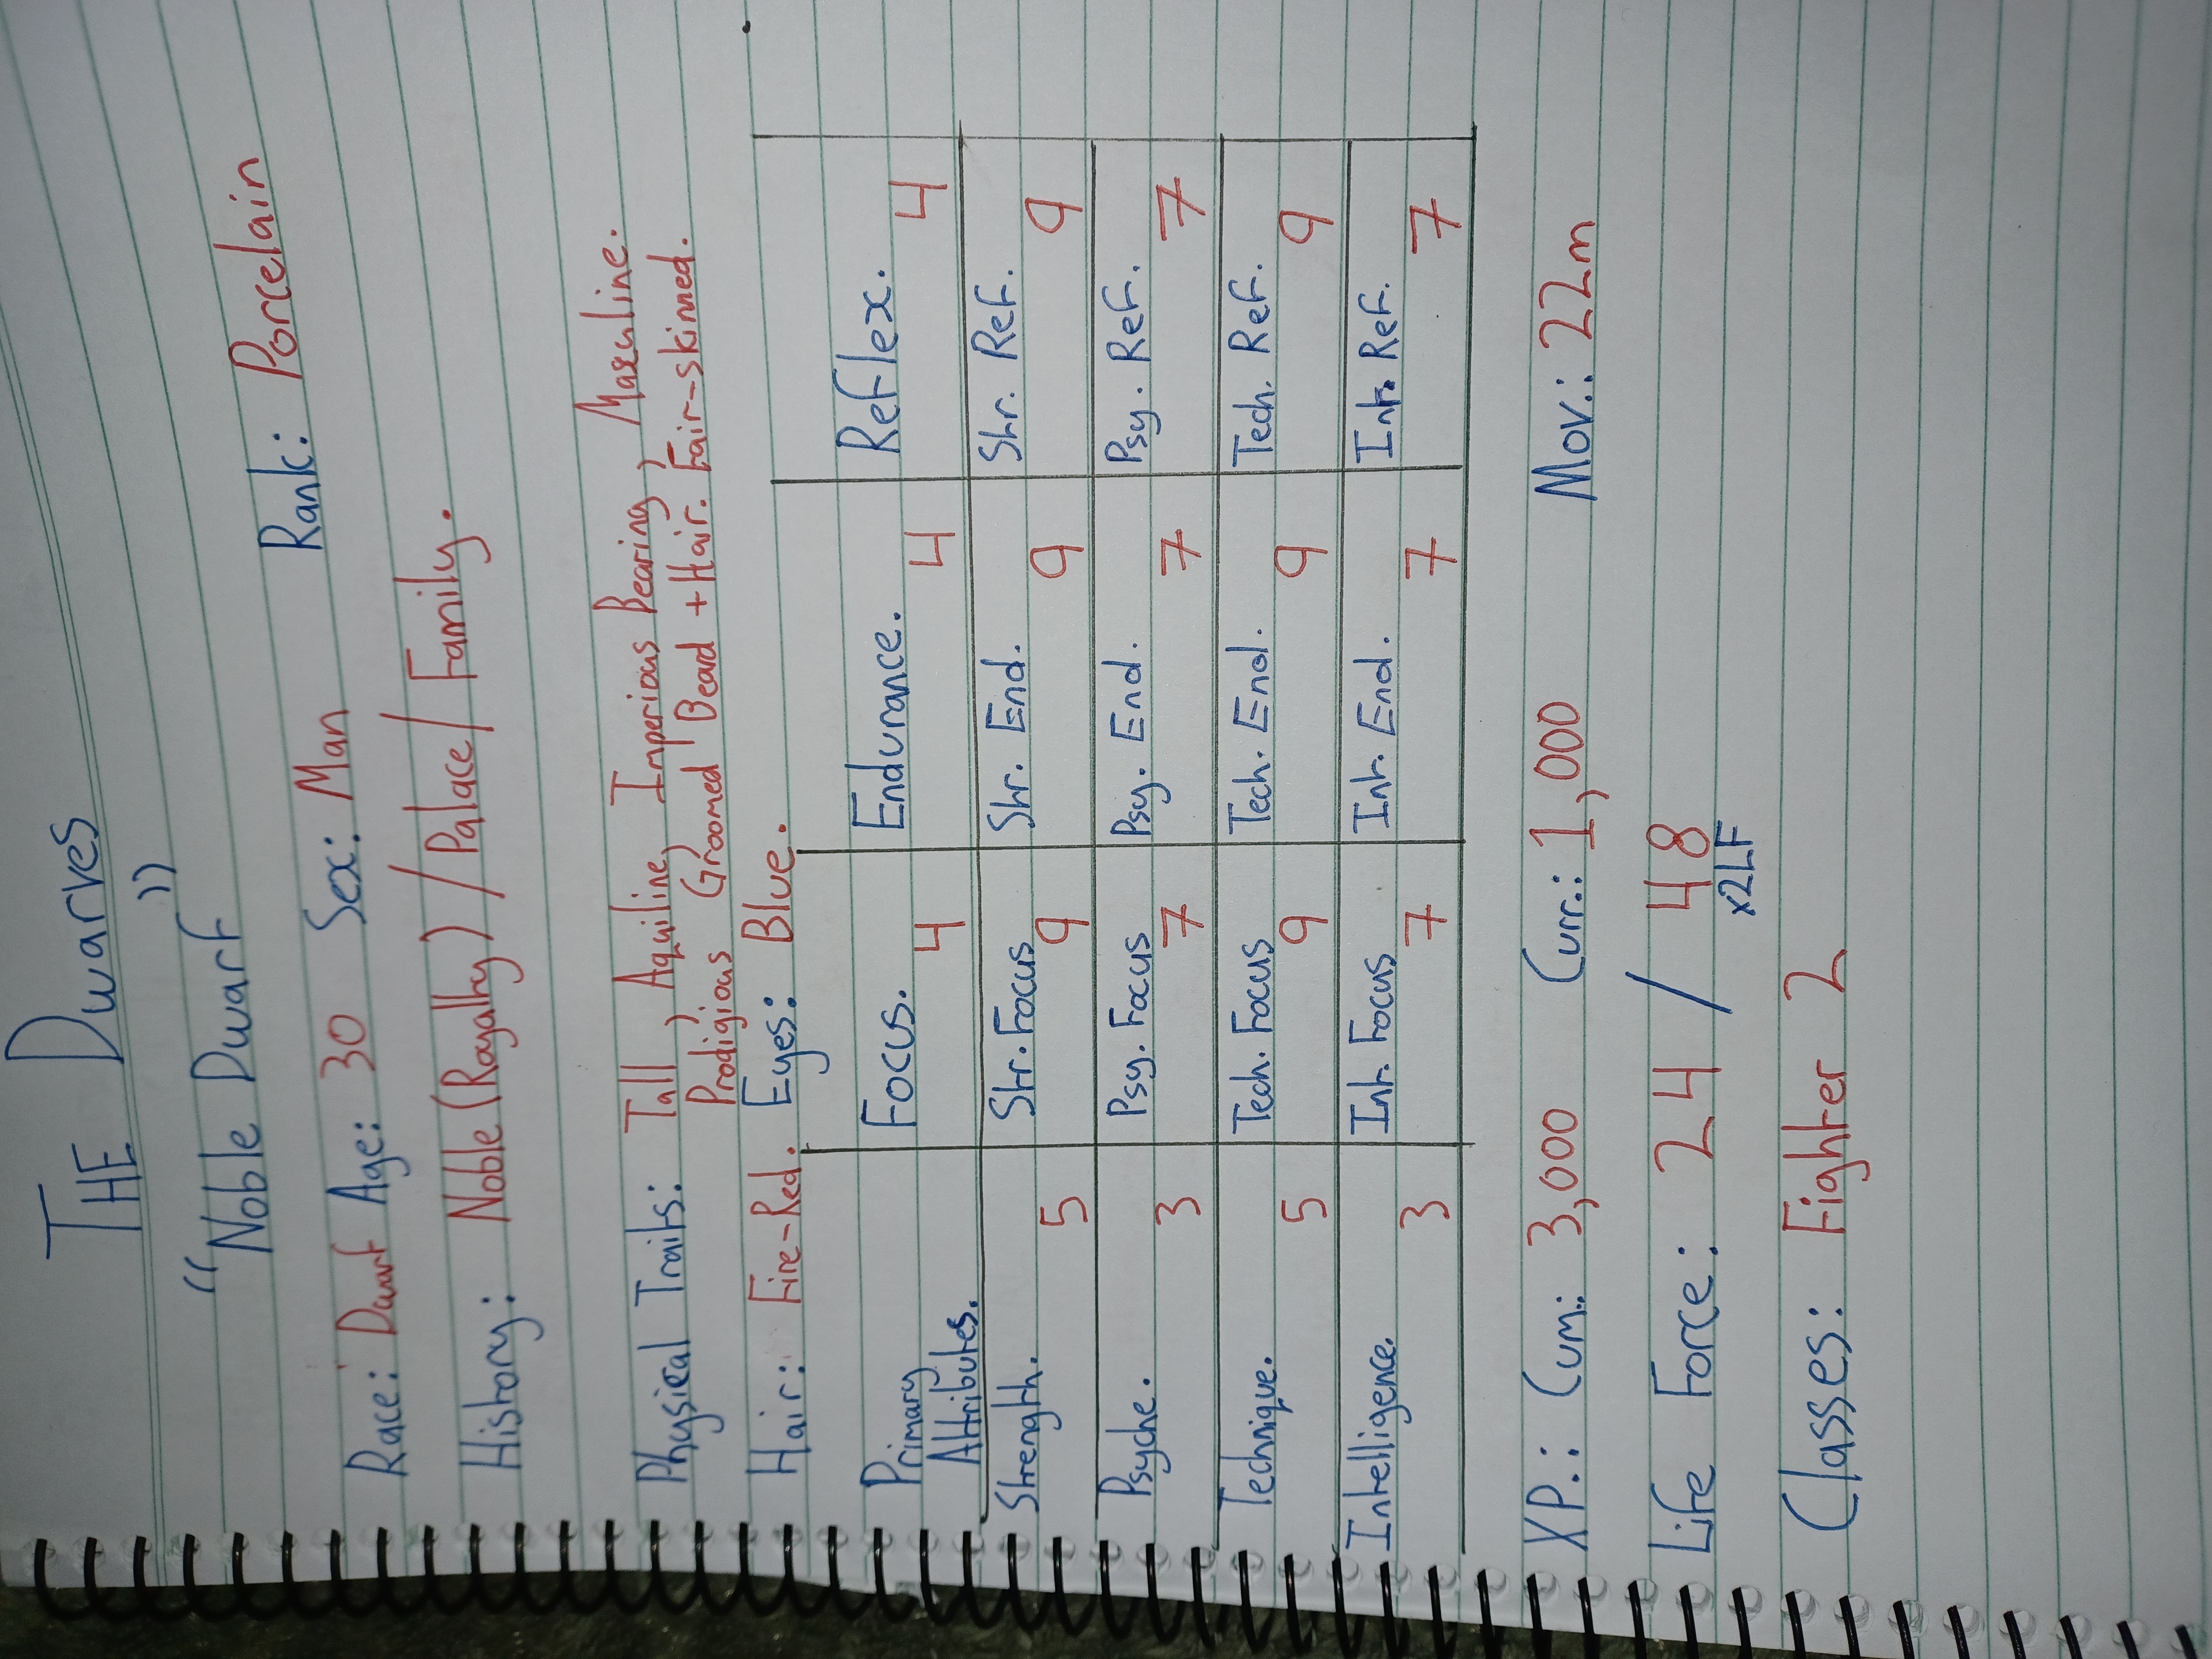 THE Dwarves
"Noble Dwarf"
Rank: Porcelain
Race: Dwarf Age: 30 Sex: Man
History: Noble (Royalty) / Palace / Family.
Physical Traits: Tall, Aquiline, Imperious Bearing, Masculine.
Prodigious Groomed Beard + Hair. Fair-skinned.
Hair: Fire-Red. Eyes: Blue.
Primary Attributes. Focus. 4 Endurance. 4 Reflex. 4
Strength. 5 Str. Focus 9 Str. End. 9 Str. Ref. 9
Psyche. 3 Psy. Focus 7 Psy. End. 7 Psy. Ref. 7
Technique. 5 Tech. Focus 9 Tech. End. 9 Tech. Ref. 9
Intelligence. 3 Int. Focus 7 Int. End. 7 Int. Ref. 7
XP.: Cum.: 3,000 Curr.: 1,000 Mov.: 22m
Life Force: 24 / 48
x2LF
Classes: Fighter 2